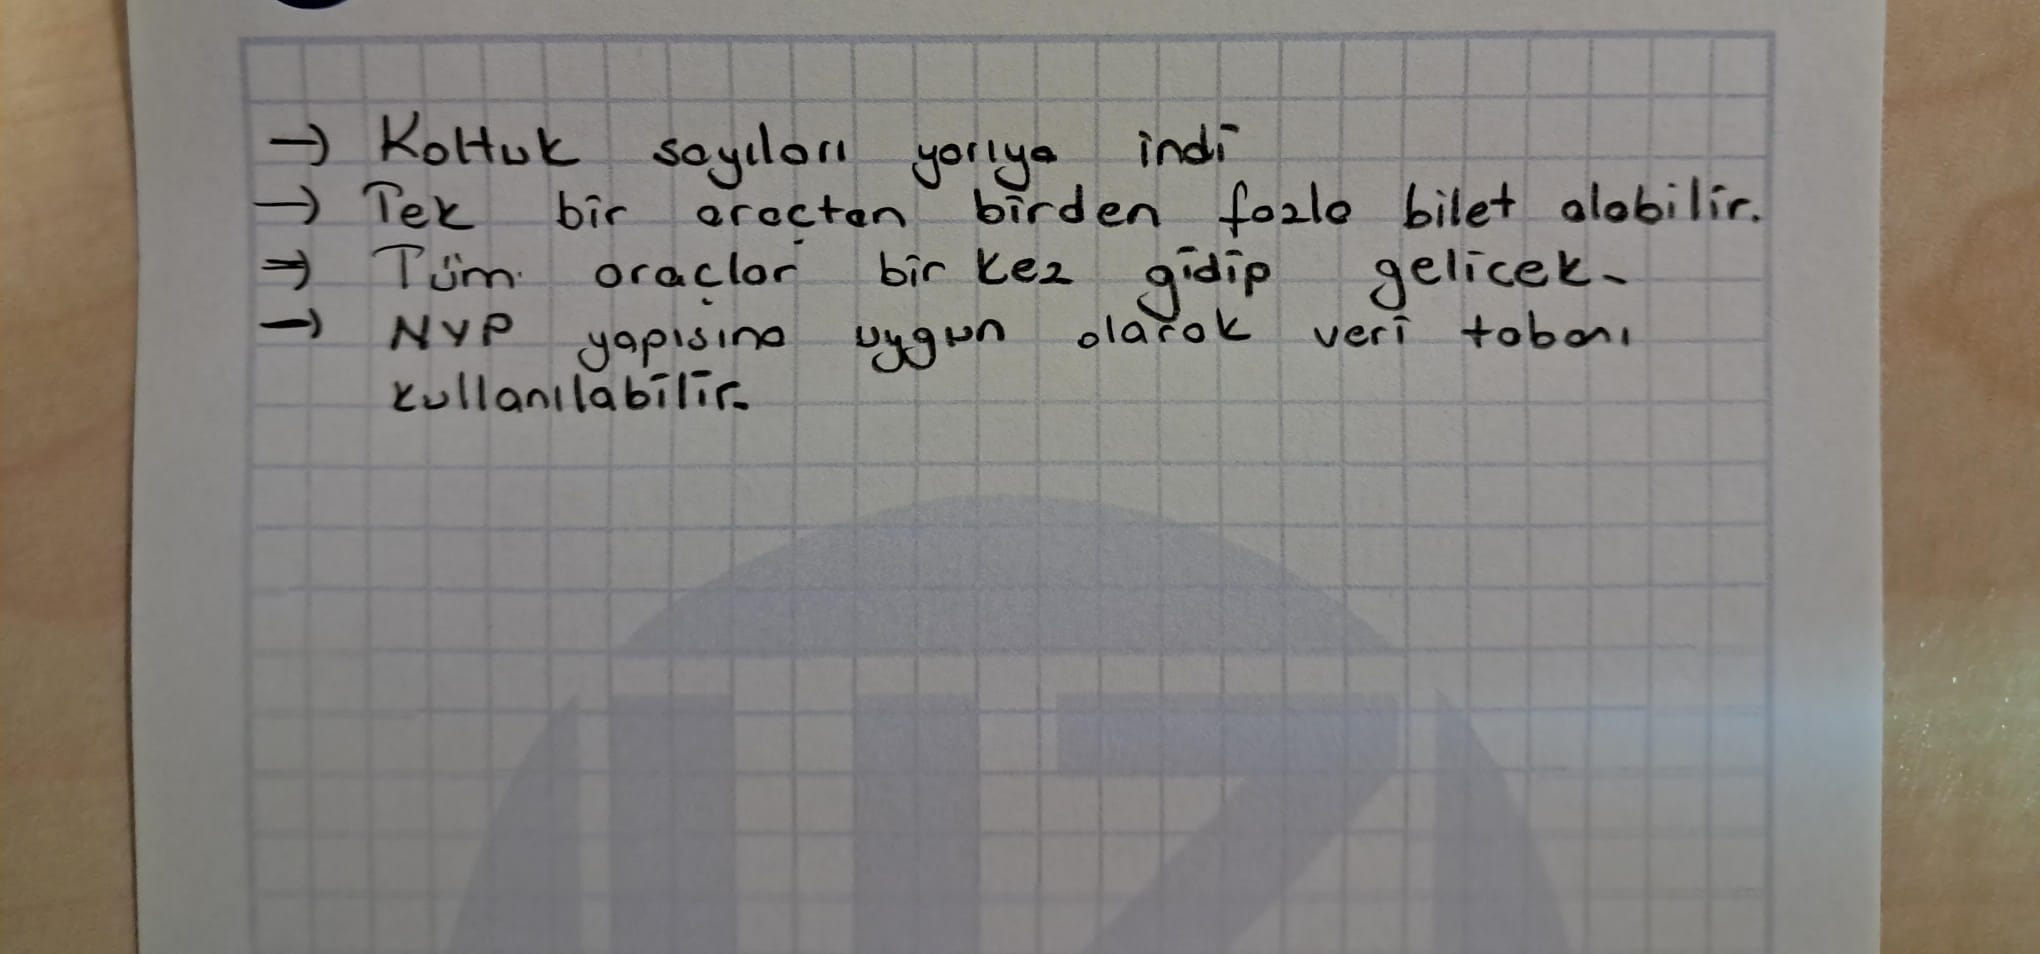 → Koltuk sayıları yarıya indi
→ Tek bir araçtan birden fazla bilet alabilir.
→ Tüm araçlar bir kez gidip gelicek.
→ NYP yapısına uygun olarak veri tabanı
kullanılabilir.